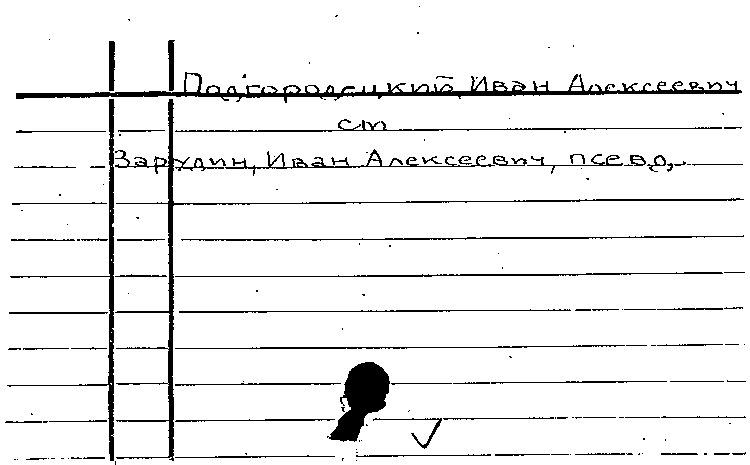 Подгородецкий, Иван Алексеевич
см
Зарудин, Иван Алексеевич, псевд.